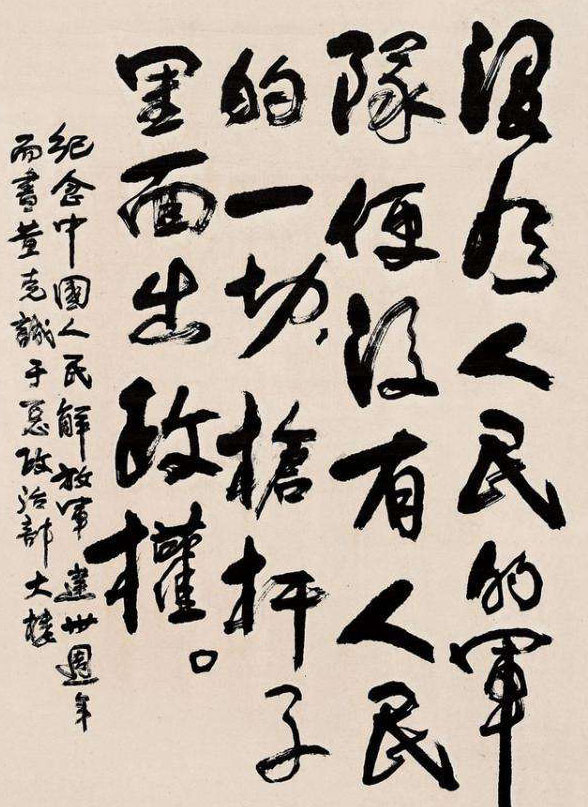 没有人民的軍
隊便没有人民
的一切，槍杆子
里面出政權。
紀念中國人民解放軍建卅週年
而書黄克誠于总政治部大楼